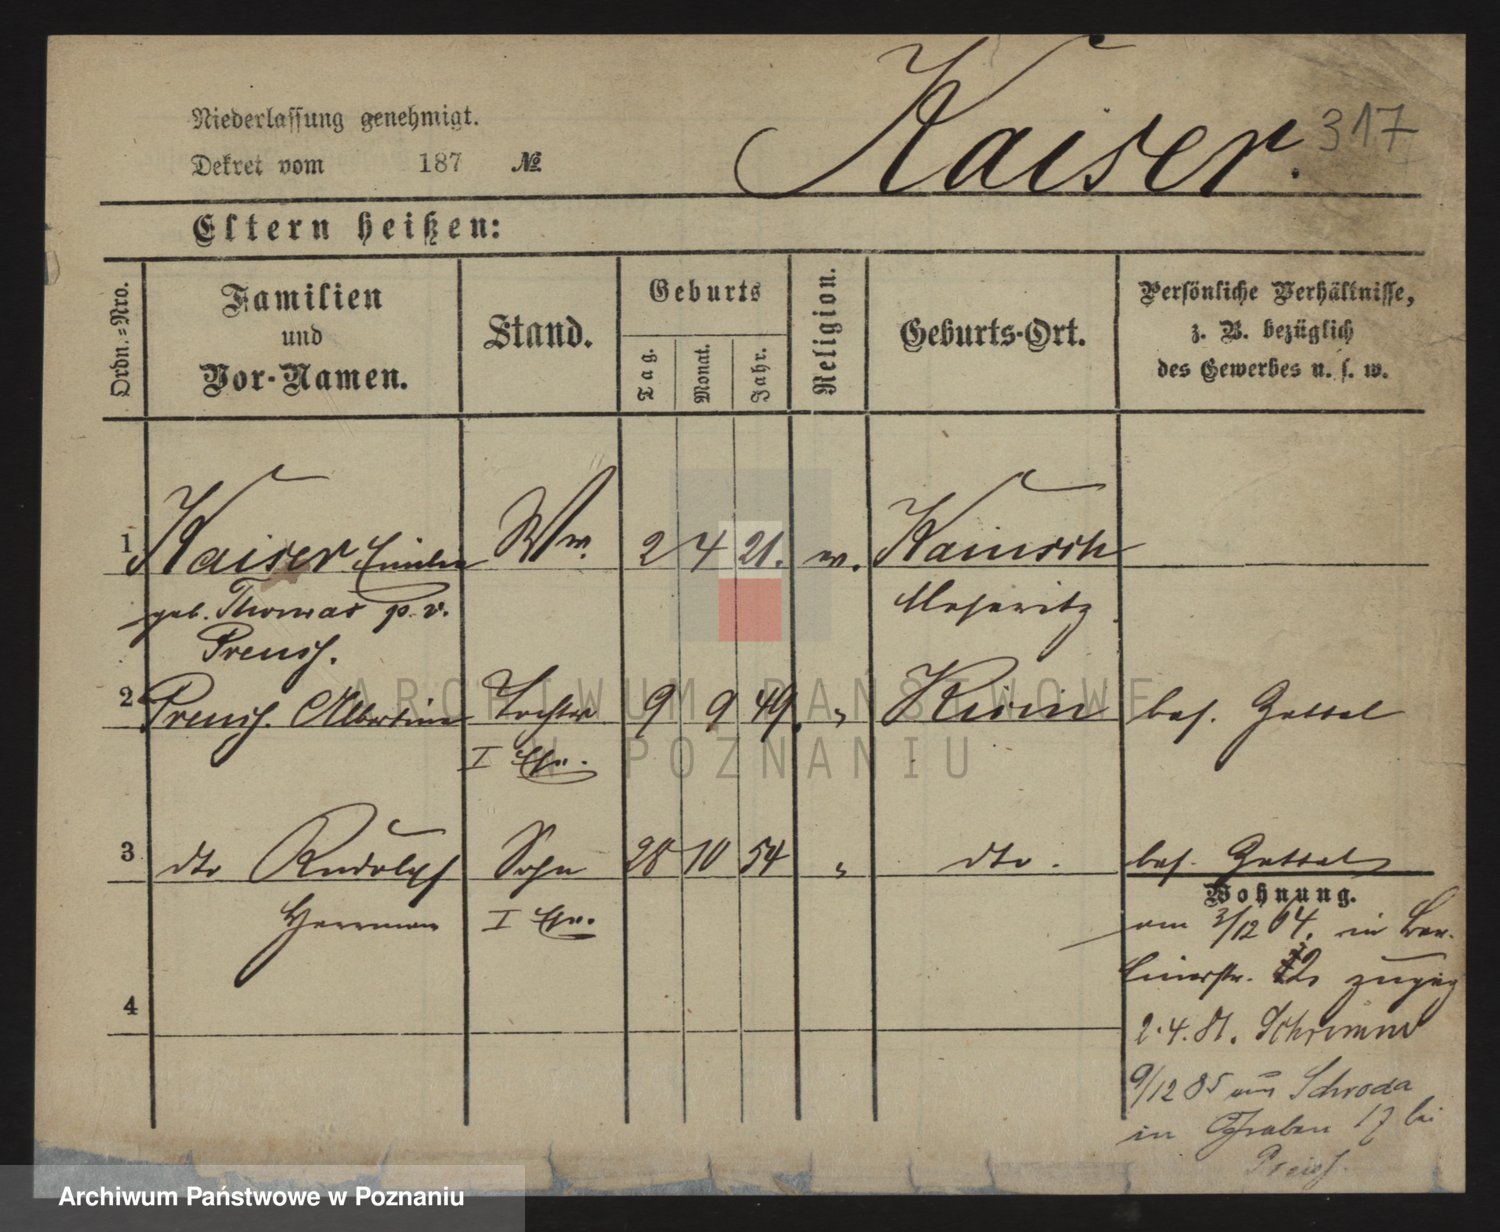 Kaiser. 317
Niederlassung genehmigt.
Dekret vom 187 №
Eltern heißen:
Ordn.=Nro.
Familien
und
Vor-Namen.
Stand.
Geburts
Tag.
Monat.
Jahr.
Religion.
Geburts-Ort.
Persönliche Verhältnisse,
z. B. bezüglich
des Gewerbes u. s. w.
1 Kaiser Emilie Ww. 2 4 21. ev. Kainsch
geb. Thomas p. v. Meseritz
Preuss.
2 Preuss. Albertine Tochter 9 9 49. " bes. Zettel
I Ehe.
3 dto Rudolph Sohn 28 10 54 " dto. bes. Zettel
Herrman I Ehe.
Wohnung.
am 3/12 04. in Ber-
linerstr. zugez
4
2.4.81. Schrimm
9/12 85 aus Schroda
in Graben 17 bei
Preuss.
ARCHIWUM PAŃSTWOWE
W POZNANIU
Archiwum Państwowe w Poznaniu